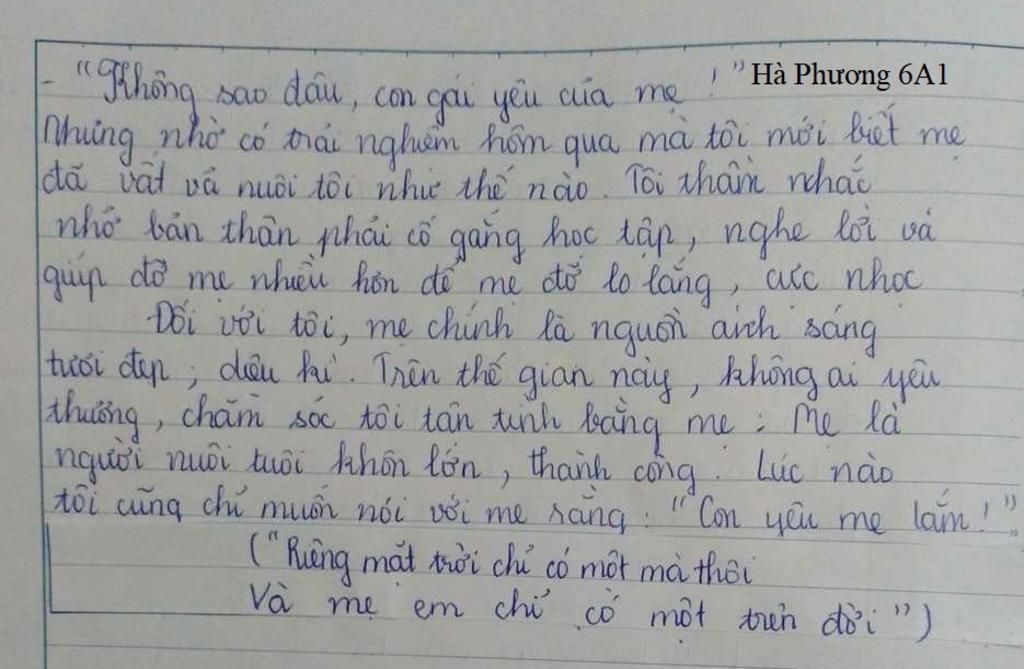 - "Không sao đâu, con gái yêu của mẹ!" Hà Phương 6A1
Nhưng nhờ có trải nghiệm hôm qua mà tôi mới biết mẹ
đã vất vả nuôi tôi như thế nào. Tôi thầm nhắc
nhở bản thân phải cố gắng học tập, nghe lời và
giúp đỡ mẹ nhiều hơn để mẹ đỡ lo lắng, cực nhọc
Đối với tôi, mẹ chính là nguồn ánh sáng
tươi đẹp, diệu kì. Trên thế gian này, không ai yêu
thương, chăm sóc tôi tận tình bằng mẹ. Mẹ là
người nuôi tuôi khôn lớn, thành công. Lúc nào
tôi cũng chỉ muốn nói với mẹ rằng: "Con yêu mẹ lắm!"
("Riêng mặt trời chỉ có một mà thôi
Và mẹ em chỉ có một trên đời")